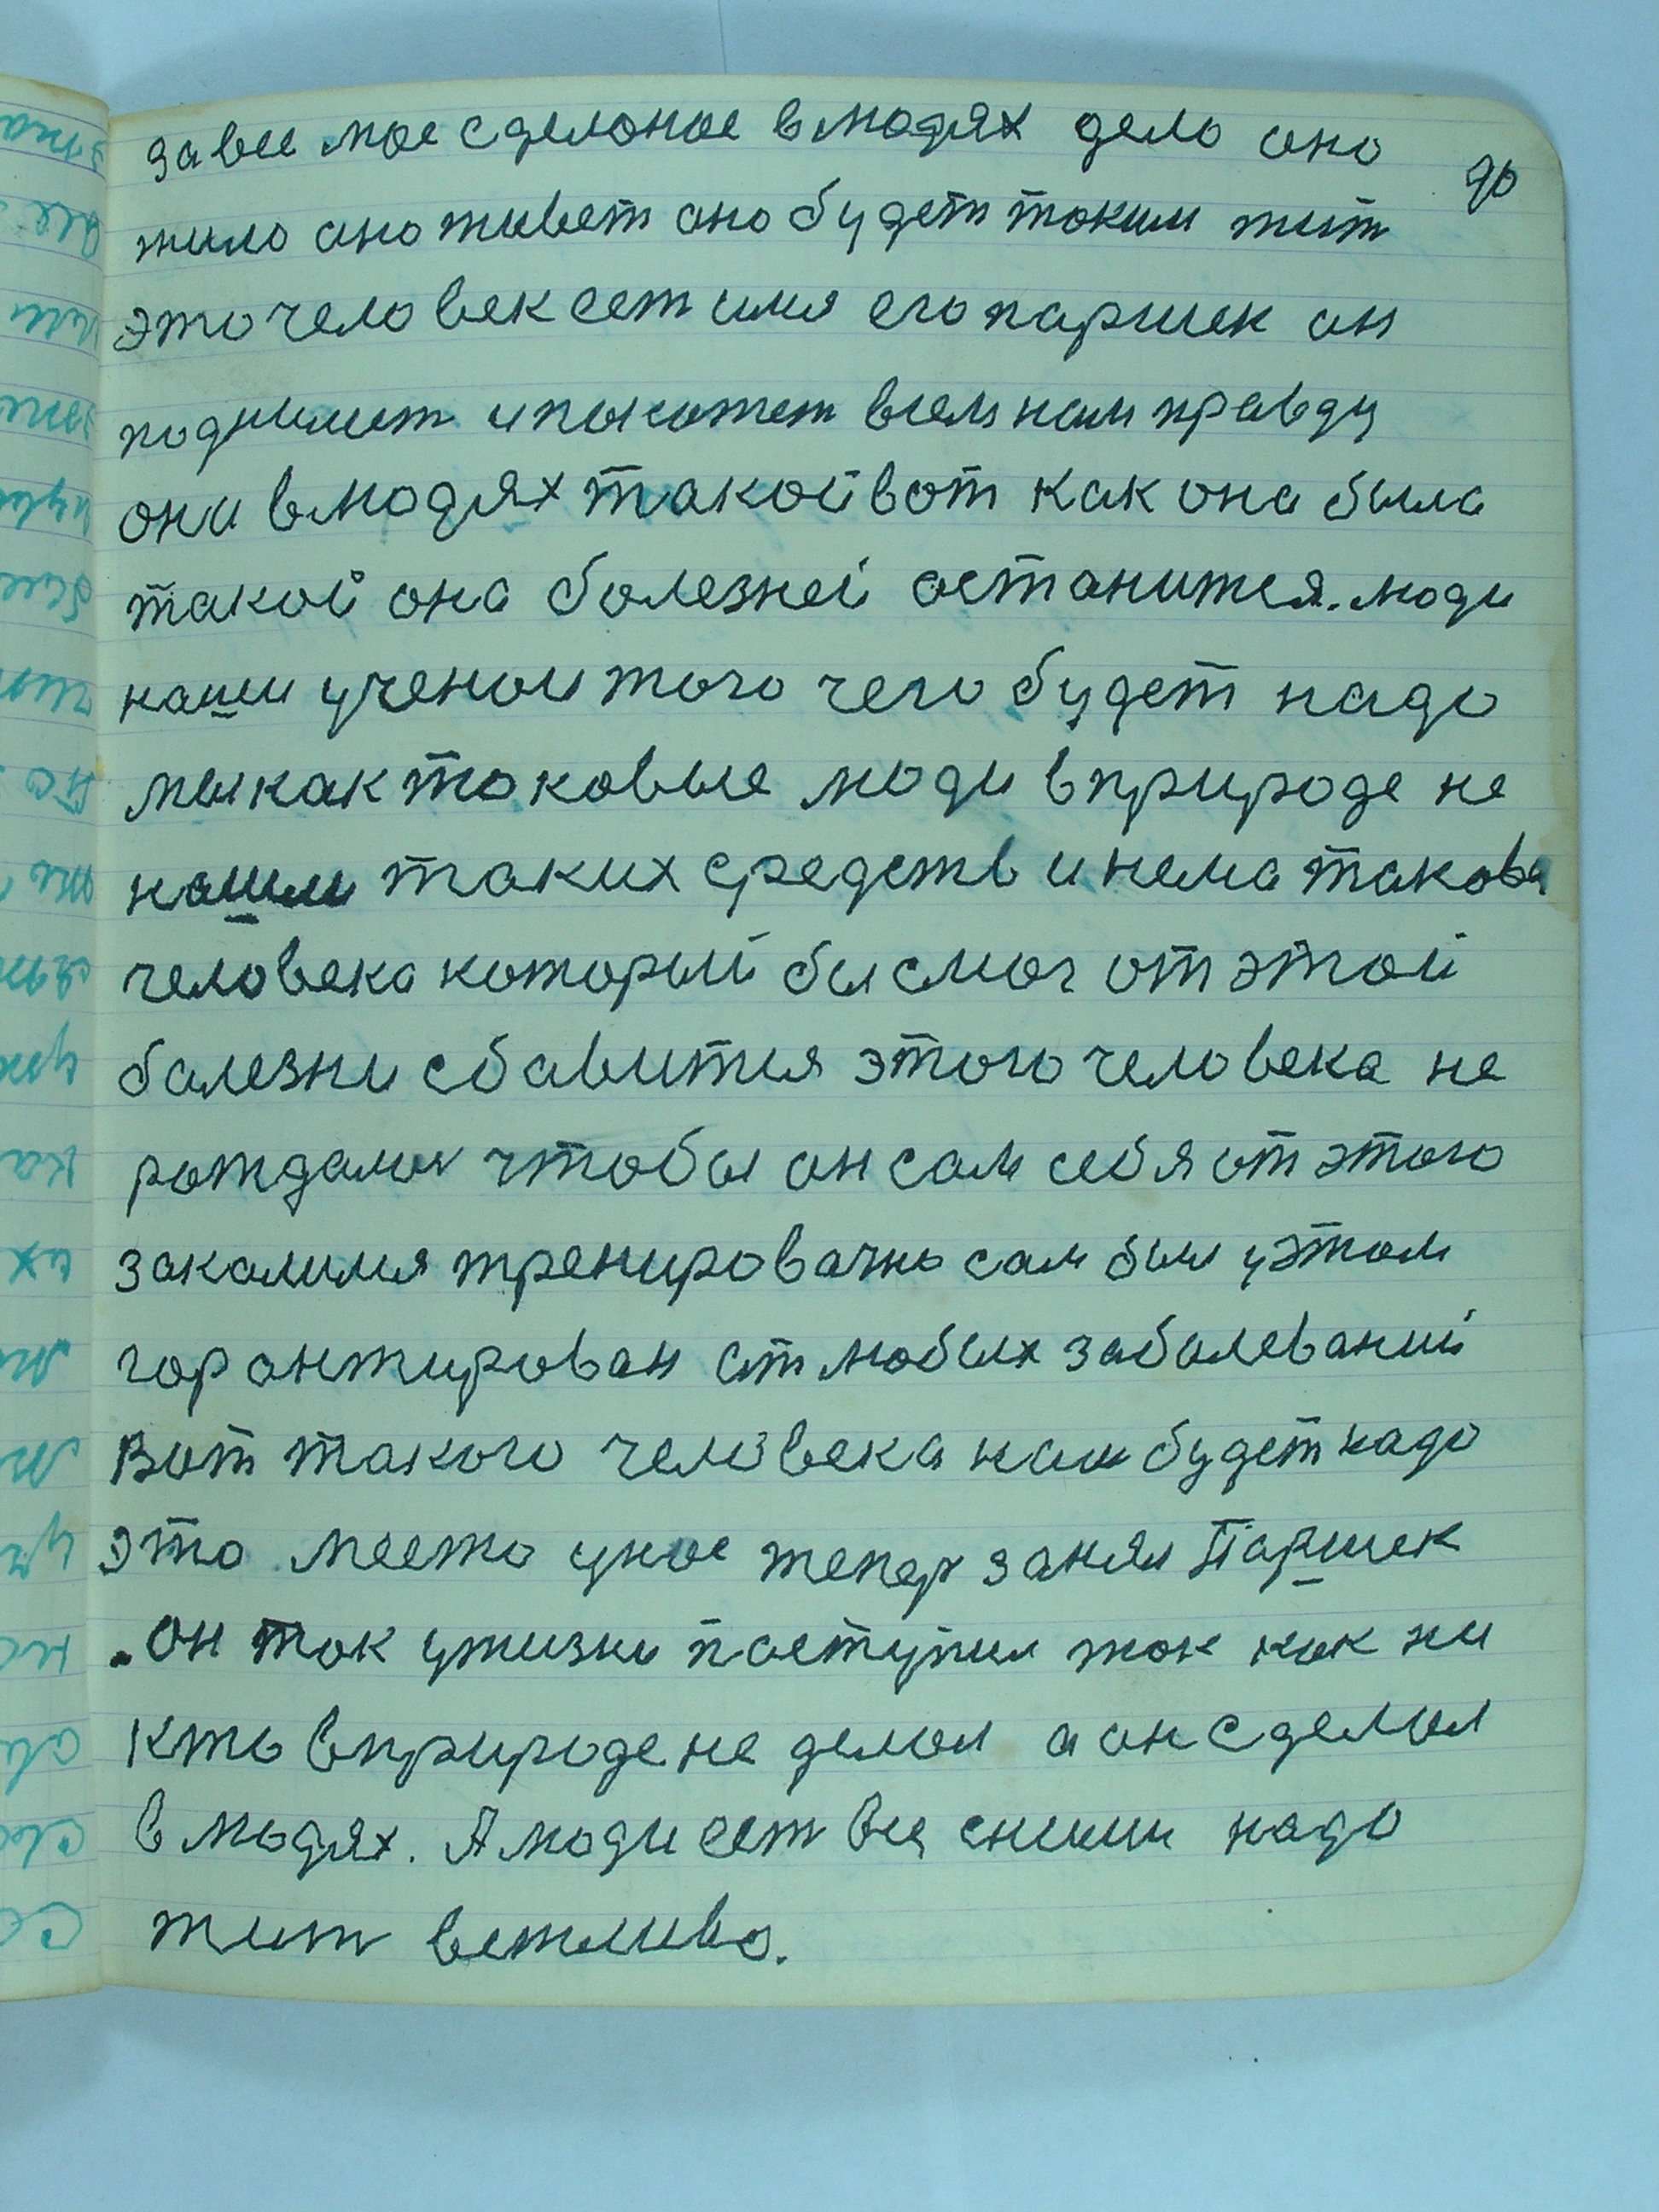 за все мое сделоное в людях дело оно
90
жило оно живет оно будет таким жит
это человек ест имя его паршек он
поднимет и покажет всем нам правду
она в людях такой вот как она была
такой она болезней останится. люди
наши ученои того чего будет надо
мы как таковые люди в природе не
нашли таких средств и нема такова
человека который бы смог от этой
балезни сбавится этого человека не
рождали чтобы он сам себя от этого
закалился тренировачно сам был у этом
горантирован от любых заболеваний
Вот такого человека нам будет надо
это место у нос тепер занял Паршек
. Он так у жизни поступил так как ни
кто в природе не делал а он сделал
в людях. А люди ест все с ними надо
жит вежливо.